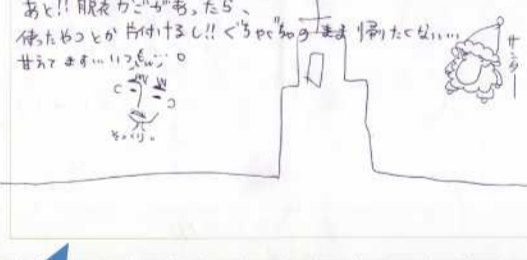 あと!! 脱衣カゴがあったら、
使ったやつとか片付けるし!! ぐちゃぐちゃのまま帰りたくない…
甘えてます…いつも…。
そっくり。
サンター